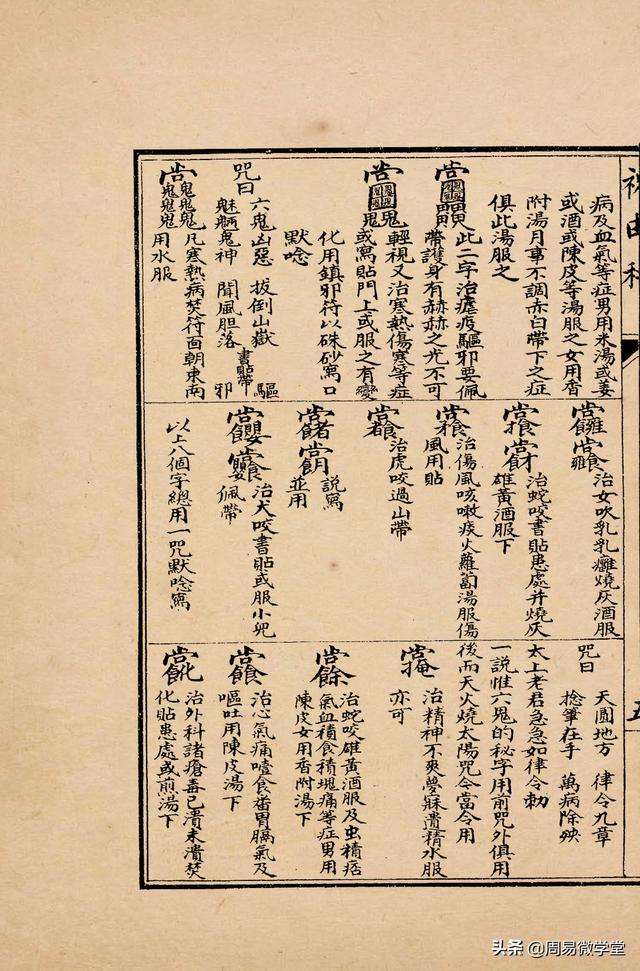 病及血氣等症男用米湯或姜
或酒或陳皮等湯服之女用香
附湯月事不調赤白帶下之症
俱此湯服之
此二字治瘧疫驅邪要佩
帶護身有赫赫之光不可
輕視又治寒熱傷寒等症
或寫貼門上或服之有變
化用鎮邪符以硃砂寫口
默唸
咒曰
六鬼凶惡 拔倒山嶽 驅
鬼神 聞風胆落 邪
書貼帶
凡寒熱病焚符面朝東南
用水服
治女吹乳乳癰燒灰酒服
治蛇咬書貼患處并燒灰
雄黃酒服下
治傷風咳嗽痰火蘿蔔湯服傷
風用貼
治虎咬過山帶
說寫
並用
治犬咬書貼或服小兒
佩帶
以上八個字總用一咒默唸寫
咒曰
天圓地方 律令九章
捻筆在手 萬病除殃
太上老君急急如律令勅
一說惟六鬼的秘字用前咒外俱用
後而天火燒太陽咒令當令用
治精神不爽夢寐遺精水服
亦可
治蛇咬雄黃酒服及虫積痞
氣血積食積塊痛等症男用
陳皮女用香附湯下
治心氣痛噎食番胃膈氣及
嘔吐用陳皮湯下
治外科諸瘡毒已潰未潰焚
化貼患處或煎湯下
头条 @周易微学堂